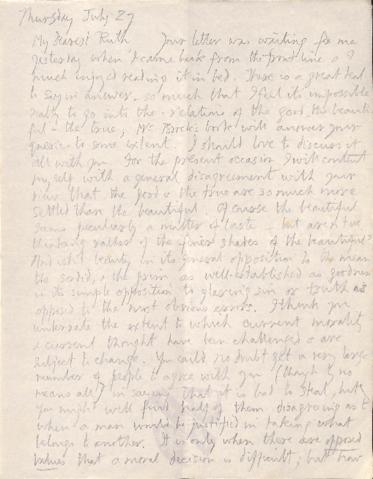 Thursday July 27
My Dearest Ruth Your letter was waiting for me
yesterday when I came back from the front line & I
much enjoyed reading it in bed. There is a great deal
to say in answer, so much that I feel it impossible
really to go into the relations of the good, the beauti
ful & the true; Mr Brock's book will answer your
queries to some extent. I should love to discuss it
all with you. For the present occasion I will content
myself with a general disagreement with your
view that the good & the true are so much more
settled than the beautiful. Of course the beautiful
seems peculiarly a matter of taste – but aren't we
thinking rather of the finer shades of the beautiful?
And isn't beauty in its general opposition to the mean
the sordid, & the prim as well-established as goodness
in its simple opposition to glaring sin or truth as
opposed to the most obvious errors. I think you
underrate the extent to which current morality
& current thought have been challenged & are
subject to change. You could no doubt get a very large
number of people to agree with you (though by no
means all) in saying that it is bad to steal, but
you might well find half of them disagreeing as to
when a man would be justified in taking what
belongs to another. It is only when there are opposed
values that a moral decision is difficult; but how